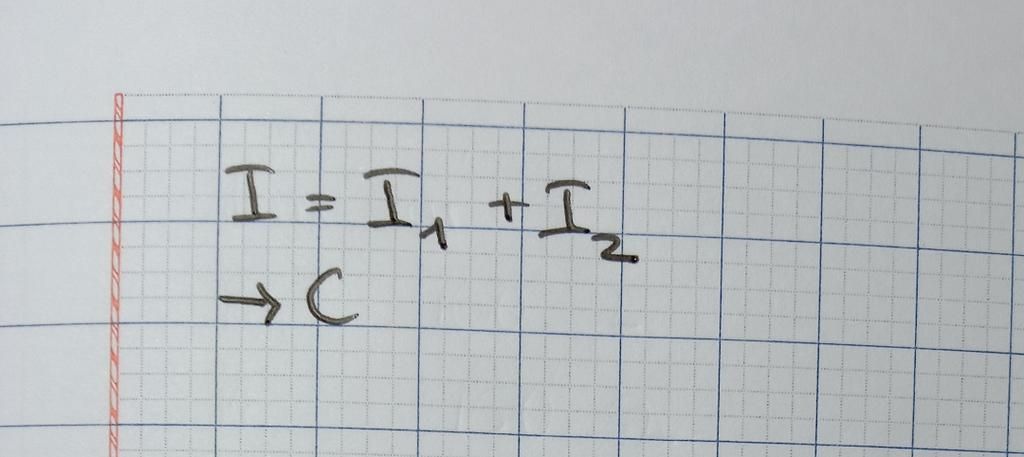 I = I₁ + I₂
→ C